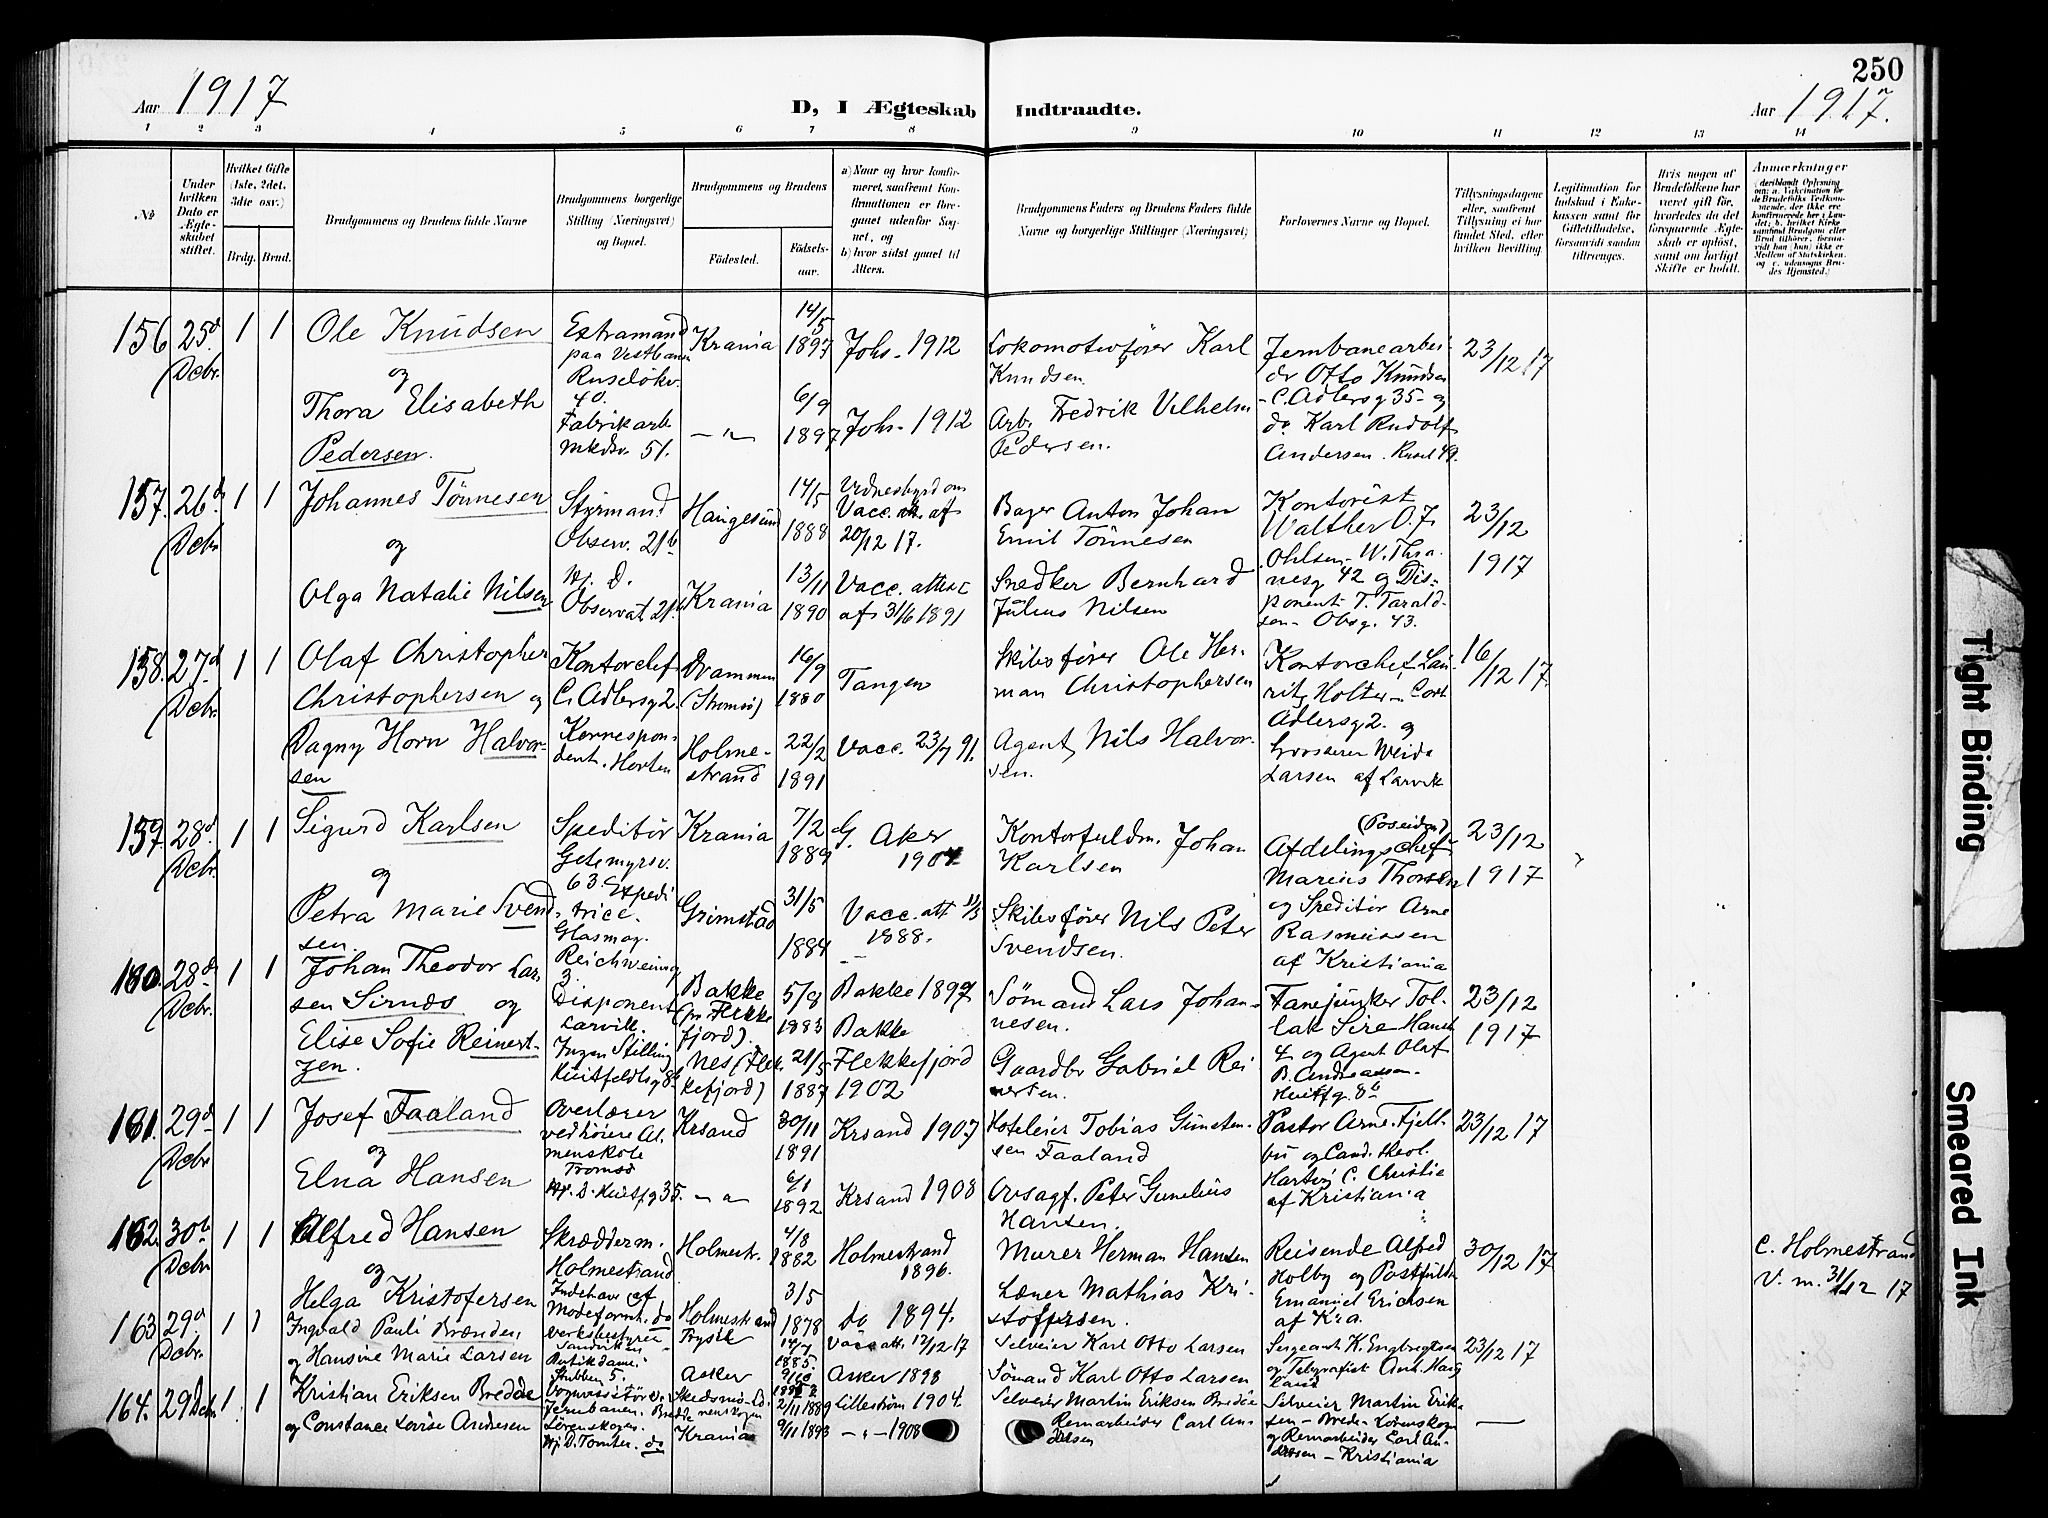 250
Aar 1917
D, I Ægteskab Indtraadte.
Aar 1917.
1 2 3 4 5 6 7 8 9 10 11 12 13 14
№
Under hvilken Dato er Ægteskabet stiftet.
Hvilket Gifte (1ste, 2det, 3die osv.)
Brdg. Brud.
Brudgommens og Brudens fulde Navne
Brudgommens borgerlige Stilling (Næringsvei) og Bopæl.
Brudgommens og Brudens
Fødested.
Fødselsaar.
a) Naar og hvor konfirmeret, saafremt Konfirmationen er foregaaet udenfor Sognet, og
b) hvor sidst gaaet til Alters.
Brudgommens Faders og Brudens Faders fulde Navne og borgerlige Stillinger (Næringsvei)
Forlovernes Navne og Bopæl.
Tillysningsdagene eller, saafremt Tillysning ei har fundet Sted, efter hvilken Bevilling.
Legitimation for Indskud i Enkekassen samt for Giftetilladelse, forsaavidt saadan tiltrænges.
Hvis nogen af Brudefolkene har været gift før, hvorledes da det foregaaende Ægteskab er opløst, samt om lovligt Skifte er holdt.
Anmærkninger
156 25d Dcbr. 1 1
Ole Knudsen
og
Thora Elisabeth
Pedersen.
Extramand
paa Vestbanen
Ruseløkv.
40.
Fabrikarb
mkdsv. 51.
Krania
— " —
14/5
1897
6/9
1897
Johs - 1912
Johs - 1912
Lokomotivfører Karl
Knudsen.
Arb. Fredrik Vilhelm
Pedersen.
Jernbanearbei-
der Otto Knudsen
- C. Adlersg 35 - og
do Karl Rudolf
Andersen. Rusel 49.
23/12 17
157. 26d Dcbr 1 1
Johannes Tönnesen
og
Olga Natalie Nilsen
Styrmand
Observ. 21b
Hj. d.
Observat. 21b
Haugesund
Krania
14/5
1888
13/11
1890
Vidnesbyrd om
Vacc. att. af
20/12 17.
Vacc. attest
af 31/6 1891
Bager Anton Johan
Emil Tönnesen
Snedker Bernhard
Julius Nilsen
Kontorist
Walther O. J.
Ohlsen - W. Thra-
nesg 42 og Dis-
ponent T. Tarald-
sen - Obsg. 43.
23/12
1917
158. 27d Dcbr. 1 1
Olaf Christopher
Christophersen og
Dagny Horn Halvor-
sen
Kontorchef
C. Adlersg 2.
Korrespon-
dent. Horten
Drammen
(Strømsø)
Holme-
strand
16/9
1880
22/2
1891
Tangen
Vacc. 23/7 91.
Skibsfører Ole Her-
man Christophersen
Agent Nils Halvor-
sen.
Kontorchef Lau-
ritz Holter - Cort
Adlersg 2. og
Grosserer Weida
Larsen af Larvik
16/12 17.
159. 28d Dcbr. 1 1
Sigurd Karlsen
og
Petra Marie Svend-
sen.
Speditør
Getemyrsv.
63. Expedi-
trice.
Glasmag.
Reichweinsg
3.
Krania
Grimstad
7/2
1889
31/5
1884
G. Aker
1904.
Vacc. att 11/5
1888.
Kontorfuldm. Johan
Karlsen
Skibsfører Nils Peter
Svendsen.
(Poseidon)
Afdelingschef
Marius Thorsen
og Speditør Arne
Rasmussen
af Kristiania
23/12
1917
160. 28d Dcbr. 1 1
Johan Theodor Lar-
sen Sirnæs og
Elise Sofie Reinert-
zen.
Disponent
Larvik.
Ingen Stilling
Huitfeldtsg 8b
Bakke
(pr Flekke
fjord).
Nes (Flek-
kefjord)
5/9
1883
21/5
1887
Bakke 1897
Bakke
Flekkefjord
1902
Sømand Lars Johan-
nesen.
Gaardbr Gabriel Rei
nertsen.
Fanejunker Tol-
lak Sire Hansth
4 og Agent Olaf
B. Andreassen -
Huitfg. 8b
23/12
1917
161. 29d Dcbr 1 1
Josef Faaland
og
Elna Hansen
Overlærer
ved høiere Al-
menskole
Tromsø
Hj. d. Huitfg 35.
Krsand
— " —
30/11
1891
6/1
1892
Krsand 1907
Krsand 1908
Hoteleier Tobias Gunsten-
sen Faaland
Ovsagf. Peter Gunelius
Hansen.
Pastor Arne Fjell-
bu og Cand. theol.
Hartvig C. Christie
af Kristiania
23/12 17
162. 30te Dcbr 1 1
Alfred Hansen
og
Helga Kristofersen
Skrædderm.
Holmestrand
Indehave af
Modeforretn. do
Holmestr.
Holmestrand
4/8
1882
3/5
1878
Holmestrand
1896.
do 1894.
Murer Herman Hansen
Læner Mathias Kri-
stoffersen.
Reisende Alfred
Holby og Postfuldm
Emanuel Ericksen
af Kra.
30/12 17
C. Holmestrand
V. m. 31/12 17
163 29d Dcbr. 1 1
Ingvald Pauli Brænden
og Hansine Marie Larsen
Verksbestyrer
Sandviken
Butikdame
Stubben 5.
Trysil
Asker
14/7
1885.
9/10
Vacc att. 17/12 17
Asker 1898
Selveier Karl Otto Larsen
Sömand Karl Otto Larsen
Sergeant K. Engbregtsen
og Telegrafist Ant. Haug
land
23/12 17
164. 29 Dcbr 1 1
Kristian Eriksen Bredde
og Constance Lovise Andresen
Jernbanen. Bredde
Lörenskogen.
Hj. D. Tomter. do
Krania
2/11 1889
9/11 1893
Lilleström 1904.
— " — 1908
Selveier Martin Eriksen Bredde
Remarbeider Carl An-
dresen
Selveier Martin Erik-
sen - Brede - Lorenskog
og Remarbeider Carl An-
dresen - Kristiania
—
Tight Binding
Smeared Ink